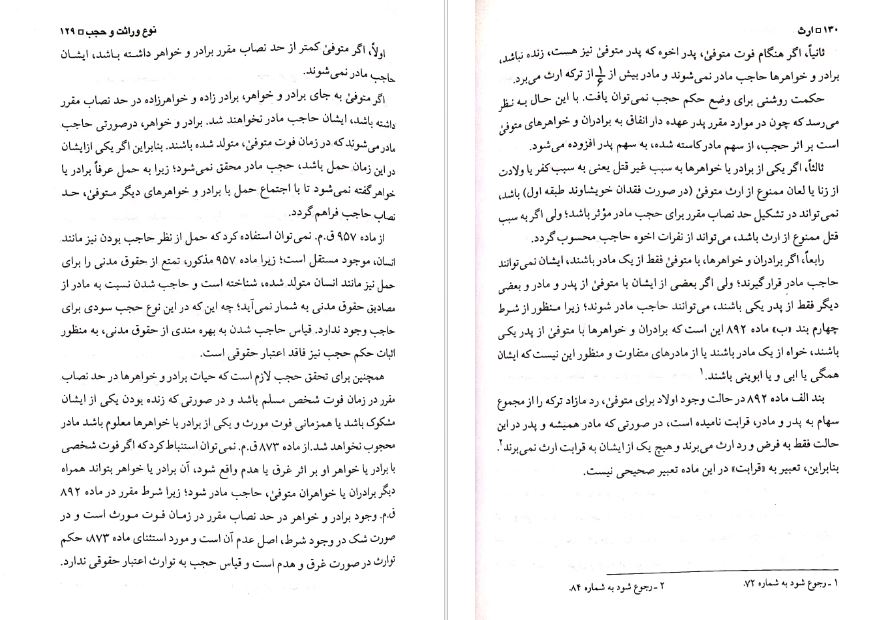 نوع وراثت و حجب □ ۱۲۹
اولاً، اگر متوفیٰ کمتر از حد نصاب مقرر برادر و خواهر داشته باشد، ایشان
حاجب مادر نمی‌شوند.
اگر متوفیٰ به جای برادر و خواهر، برادر زاده و خواهرزاده در حد نصاب مقرر
داشته باشد، ایشان حاجب مادر نخواهند شد. برادر و خواهر، درصورتی حاجب
مادر می‌شوند که در زمان فوت متوفیٰ، متولد شده باشند. بنابراین اگر یکی ازایشان
در این زمان حمل باشد، حجب مادر محقق نمی‌شود؛ زیرا به حمل عرفاً برادر یا
خواهر گفته نمی‌شود تا با اجتماع حمل با برادر و خواهرهای دیگر متوفیٰ، حد
نصاب حاجب فراهم گردد.
از ماده ۹۵۷ ق.م. نمی‌توان استفاده کرد که حمل از نظر حاجب بودن نیز مانند
انسان، موجود مستقل است؛ زیرا ماده ۹۵۷ مذکور، تمتع از حقوق مدنی را برای
حمل نیز مانند انسان متولد شده، شناخته است و حاجب شدن نسبت به مادر از
مصادیق حقوق مدنی به شمار نمی‌آید؛ چه این که در این نوع حجب سودی برای
حاجب وجود ندارد. قیاس حاجب شدن به بهره مندی از حقوق مدنی، به منظور
اثبات حکم حجب نیز فاقد اعتبار حقوقی است.
همچنین برای تحقق حجب لازم است که حیات برادر و خواهرها در حد نصاب
مقرر در زمان فوت شخص مسلم باشد و در صورتی که زنده بودن یکی از ایشان
مشکوک باشد یا همزمانی فوت مورث و یکی از برادر یا خواهرها معلوم باشد مادر
محجوب نخواهد شد. از ماده ۸۷۳ ق.م. نمی‌توان استنباط کرد که اگر فوت شخصی
با برادر یا خواهر او بر اثر غرق یا هدم واقع شود، آن برادر یا خواهر بتواند همراه
دیگر برادران یا خواهران متوفیٰ، حاجب مادر شود؛ زیرا شرط مقرر در ماده ۸۹۲
ق.م. وجود برادر و خواهر در حد نصاب مقرر در زمان فوت مورث است و در
صورت شک در وجود شرط، اصل عدم آن است و مورد استثنای ماده ۸۷۳، حکم
توارث در صورت غرق و هدم است و قیاس حجب به توارث اعتبار حقوقی ندارد.
۱۳۰ □ ارث
ثانیاً، اگر هنگام فوت متوفیٰ، پدر اخوه که پدر متوفیٰ نیز هست، زنده نباشد،
برادر و خواهرها حاجب مادر نمی‌شوند و مادر بیش از ۱/۶ از ترکه ارث می‌برد.
حکمت روشنی برای وضع حکم حجب نمی‌توان یافت. با این حال به نظر
می‌رسد که چون در موارد مقرر پدر عهده دار انفاق به برادران و خواهرهای متوفیٰ
است بر اثر حجب، از سهم مادر کاسته شده، به سهم پدر افزوده می‌شود.
ثالثاً، اگر یکی از برادر یا خواهرها به سبب غیر قتل یعنی به سبب کفر یا ولادت
از زنا یا لعان ممنوع از ارث متوفیٰ (در صورت فقدان خویشاوند طبقه اول) باشد،
نمی‌تواند در تشکیل حد نصاب مقرر برای حجب مادر مؤثر باشد؛ ولی اگر به سبب
قتل ممنوع از ارث باشد، می‌تواند از نفرات اخوه حاجب محسوب گردد.
رابعاً، اگر برادران و خواهرها، با متوفیٰ فقط از یک مادر باشند، ایشان نمی‌توانند
حاجب مادر قرار گیرند؛ ولی اگر بعضی از ایشان با متوفیٰ از پدر و مادر و بعضی
دیگر فقط از پدر یکی باشند، می‌توانند حاجب مادر شوند؛ زیرا منظور از شرط
چهارم بند «ب» ماده ۸۹۲ این است که برادران و خواهرها با متوفیٰ از پدر یکی
باشند، خواه از یک مادر باشند یا از مادرهای متفاوت و منظور این نیست که ایشان
همگی یا ابی و یا ابوینی باشند.۱
بند الف ماده ۸۹۲ در حالت وجود اولاد برای متوفیٰ، رد مازاد ترکه را از مجموع
سهام به پدر و مادر، قرابت نامیده است، در صورتی که مادر همیشه و پدر در این
حالت فقط به فرض و رد ارث می‌برند و هیچ یک از ایشان به قرابت ارث نمی‌برند۲.
بنابراین، تعبیر به «قرابت» در این ماده تعبیر صحیحی نیست.
۱ ـ رجوع شود به شماره ۷۲. ۲ ـ رجوع شود به شماره ۸۴.